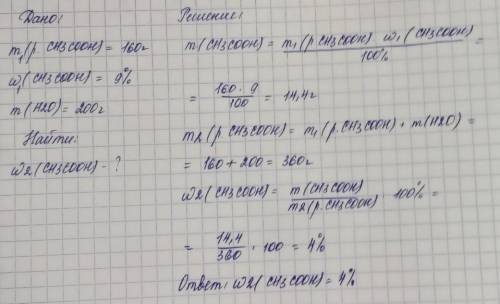 Дано:
m₁(р. CH3COOH) = 160г
ω₁(CH3COOH) = 9%
m(H2O) = 200г
Найти:
ω2(CH3COOH) - ?
Решение:
m(CH3COOH) = m₁(р CH3COOH) · ω₁(CH3COOH) / 100% =
= 160 · 9 / 100 = 14,4г
m2(р CH3COOH) = m₁(р. CH3COOH) + m(H2O) =
= 160 + 200 = 360г
ω2(CH3COOH) = m(CH3COOH) / m2(р. CH3COOH) · 100% =
= 14,4 / 360 · 100 = 4%
Ответ: ω2(CH3COOH) = 4%